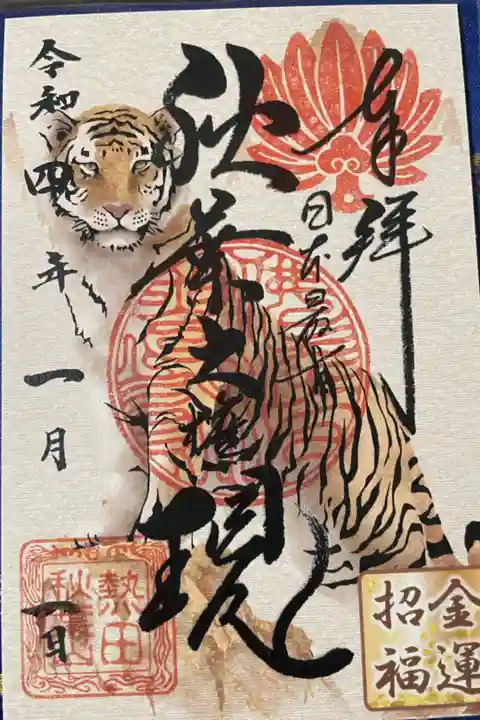 奉拝
日本最初
秋葉大権現
令和四年一月一日
熱田
秋葉山
金運
招福